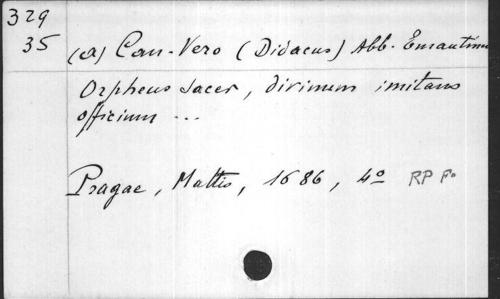 329
35
(a) Can-Vero (Didacus) Abb. Emautinu
Orpheus sacer, divinum imitans
officium ...
Pragae, Mattis, 1686, 4º RP Fo